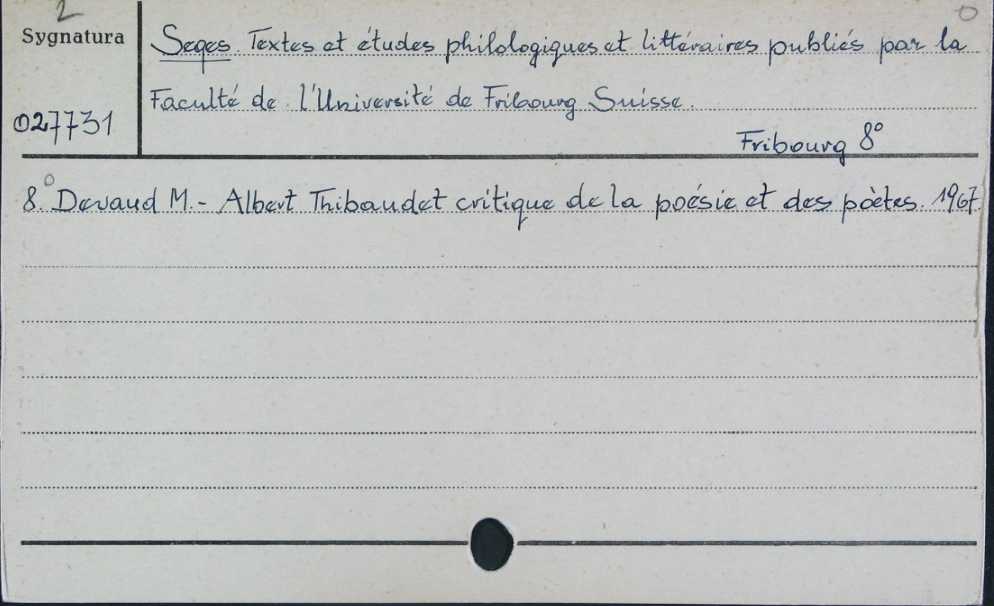 2
0
Sygnatura
Seges. Textes et études philologiques et littéraires publiés par la
Faculté de l'Université de Fribourg Suisse.
027731
Fribourg 8°
8.° Devaud M.- Albert Thibaudet critique de la poésie et des pòètes. 1967